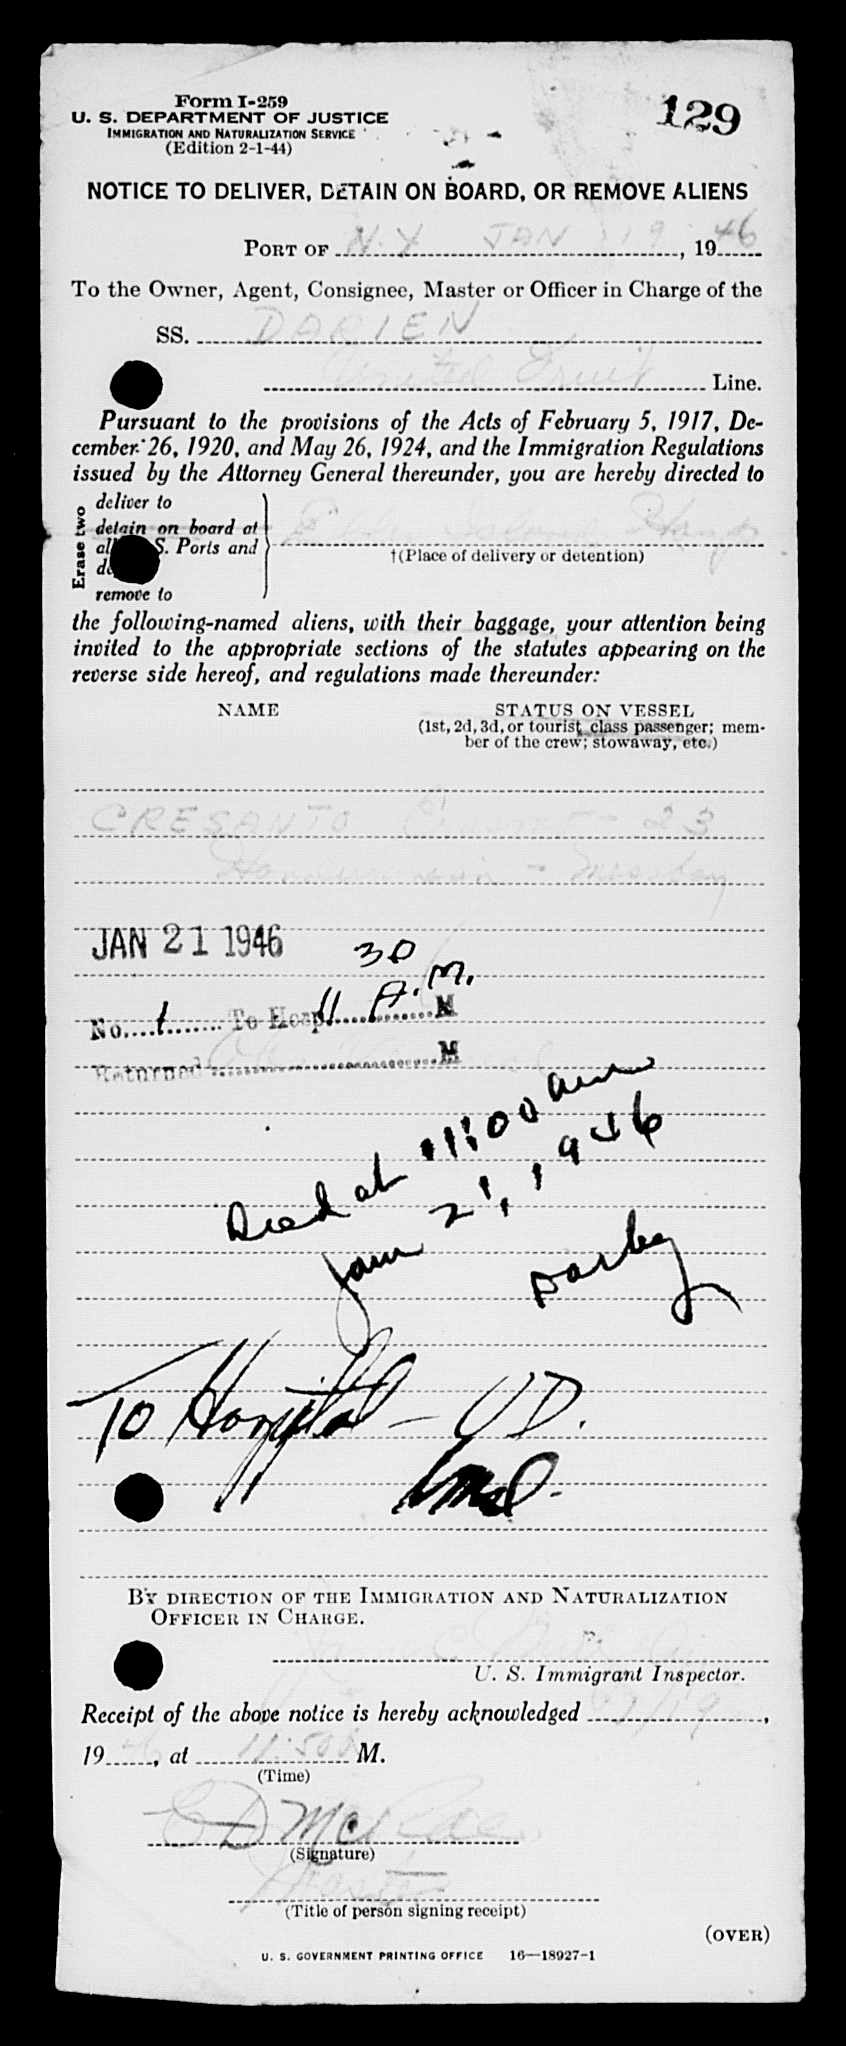 Form I-259
129
U. S. DEPARTMENT OF JUSTICE
IMMIGRATION AND NATURALIZATION SERVICE
(Edition 2-1-44)
NOTICE TO DELIVER, DETAIN ON BOARD, OR REMOVE ALIENS
PORT OF N.Y. JAN 19, 1946
To the Owner, Agent, Consignee, Master or Officer in Charge of the
SS. DARIEN
United Fruit Line.
Pursuant to the provisions of the Acts of February 5, 1917, De-
cember 26, 1920, and May 26, 1924, and the Immigration Regulations
issued by the Attorney General thereunder, you are hereby directed to
Erase two
deliver to
detain on board at
all S. Ports and
remove to
Ellis Island
†(Place of delivery or detention)
the following-named aliens, with their baggage, your attention being
invited to the appropriate sections of the statutes appearing on the
reverse side hereof, and regulations made thereunder:
NAME STATUS ON VESSEL
(1st, 2d, 3d, or tourist class passenger; mem-
ber of the crew; stowaway, etc.)
CRESANTO - 23
- Messboy
JAN 21 1946
30
No. 1 To Hosp. 11 A.M. M
Returned M
Died at 11:00 am
Jan 21, 1946
Darley
To Hospital - UD.
BY DIRECTION OF THE IMMIGRATION AND NATURALIZATION
OFFICER IN CHARGE.
U. S. Immigrant Inspector.
Receipt of the above notice is hereby acknowledged 1/19,
1946, at 11:50 A M.
(Time)
McRae
(Signature)
Master
(Title of person signing receipt)
(OVER)
U. S. GOVERNMENT PRINTING OFFICE 16—18927-1